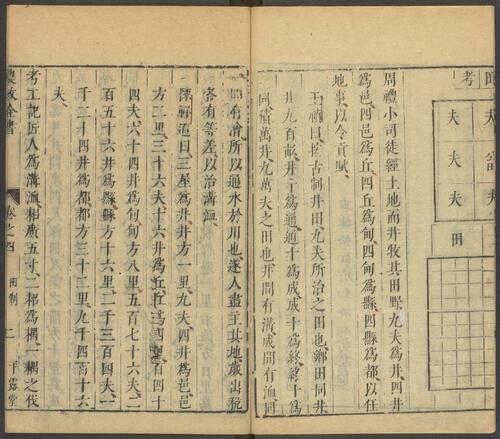 考
夫
夫
夫
夫
夫
田
周禮小司徒經土地而井牧其田野九夫爲井四井
爲邑四邑爲丘四丘爲甸四甸爲縣四縣爲都以任
地事以令貢賦
王禎曰按古制井田九夫所治之田也鄉田同井
井九百畝井十爲通通十爲成成十爲終終十爲
同積萬井九萬夫之田也井間有溝成間有洫同
間有澮所以通水於川也遂人盡主其地歲出稅
各有等差以治溝洫
陳祥道曰三屋爲井井方一里九夫四井爲邑邑
方二里三十六夫十六井爲丘丘方四里百四十
四夫六十四井爲甸甸方八里五百七十六夫二
百五十六井爲縣縣方十六里二千三百四夫一
千二十四井爲都都方三十二里九千四百十六
夫
考工記匠人爲溝洫耜廣五寸二耜爲耦一耦之伐
農政全書 卷之四 田制 二 平露堂